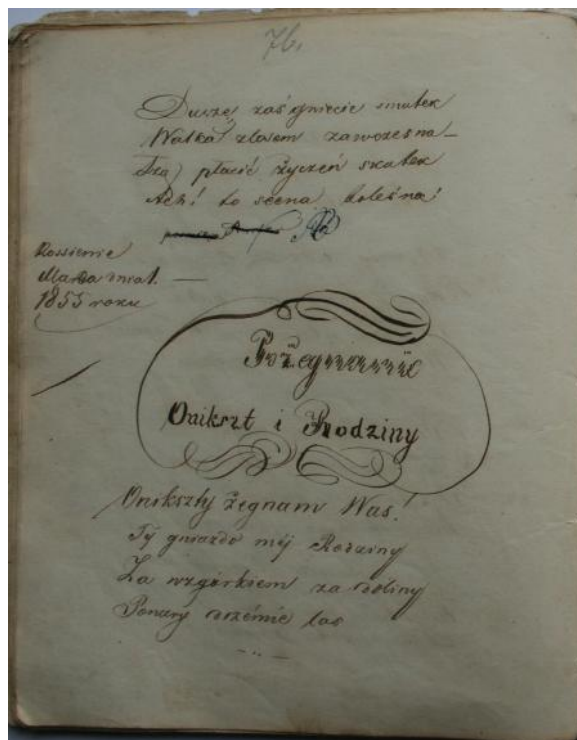 76.
Duszę zaśgniecie smutek
Walka z losem zawczesna —
Łzą płacić życzeń skutek
Ach! to scena boleśna!
Rossienie
Marca dnia 1. —
1855 roku
Pożegnanie
Onikszt i Rodziny
Onikszty żegnam Was!
Ty gniazdo mój Rodziny
Za wzgórkiem za doliny
Ponury drzémie las